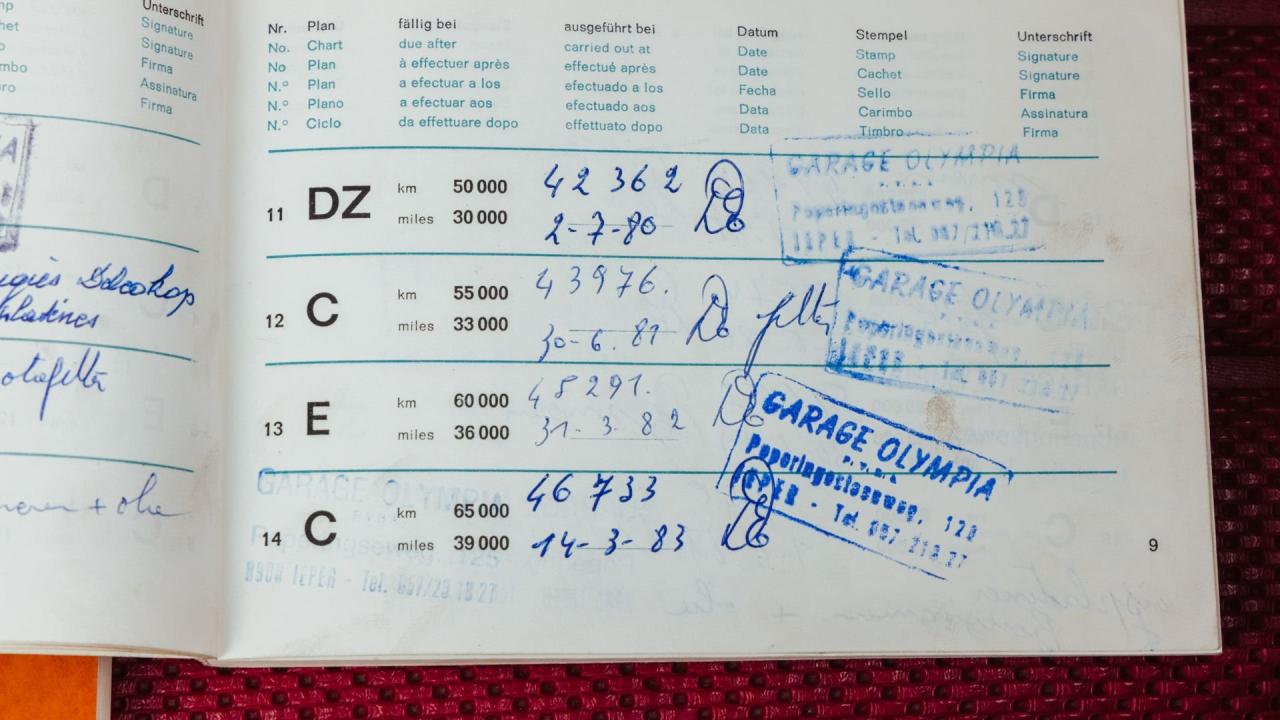 Unterschrift
Signature
Signature
Firma
Assinatura
Firma
Nr. Plan fällig bei ausgeführt bei Datum Stempel Unterschrift
No. Chart due after carried out at Date Stamp Signature
No Plan à effectuer après effectué après Date Cachet Signature
N.° Plan a efectuar a los efectuado a los Fecha Sello Firma
N.° Plano a efectuar aos efectuado aos Data Carimbo Assinatura
N.° Ciclo da effettuare dopo effettuato dopo Data Timbro Firma
11 DZ km 50 000 42 362
miles 30 000 2-7-80
GARAGE OLYMPIA
IEPER - Tel. 057/218.27
12 C km 55 000 43976.
miles 33 000 30-6.81
GARAGE OLYMPIA
IEPER - Tel. 057
13 E km 60 000 45291.
miles 36 000 31-3-82
GARAGE OLYMPIA
P.V.B.A.
Poperingesteenweg, 128
IEPER - Tel. 057/218.27
14 C km 65 000 46 733
miles 39 000 14-3-83
GARAGE OLYMPIA
Poperingseweg, 125
8900 IEPER - Tel. 057/20.18.27
+ olie
9